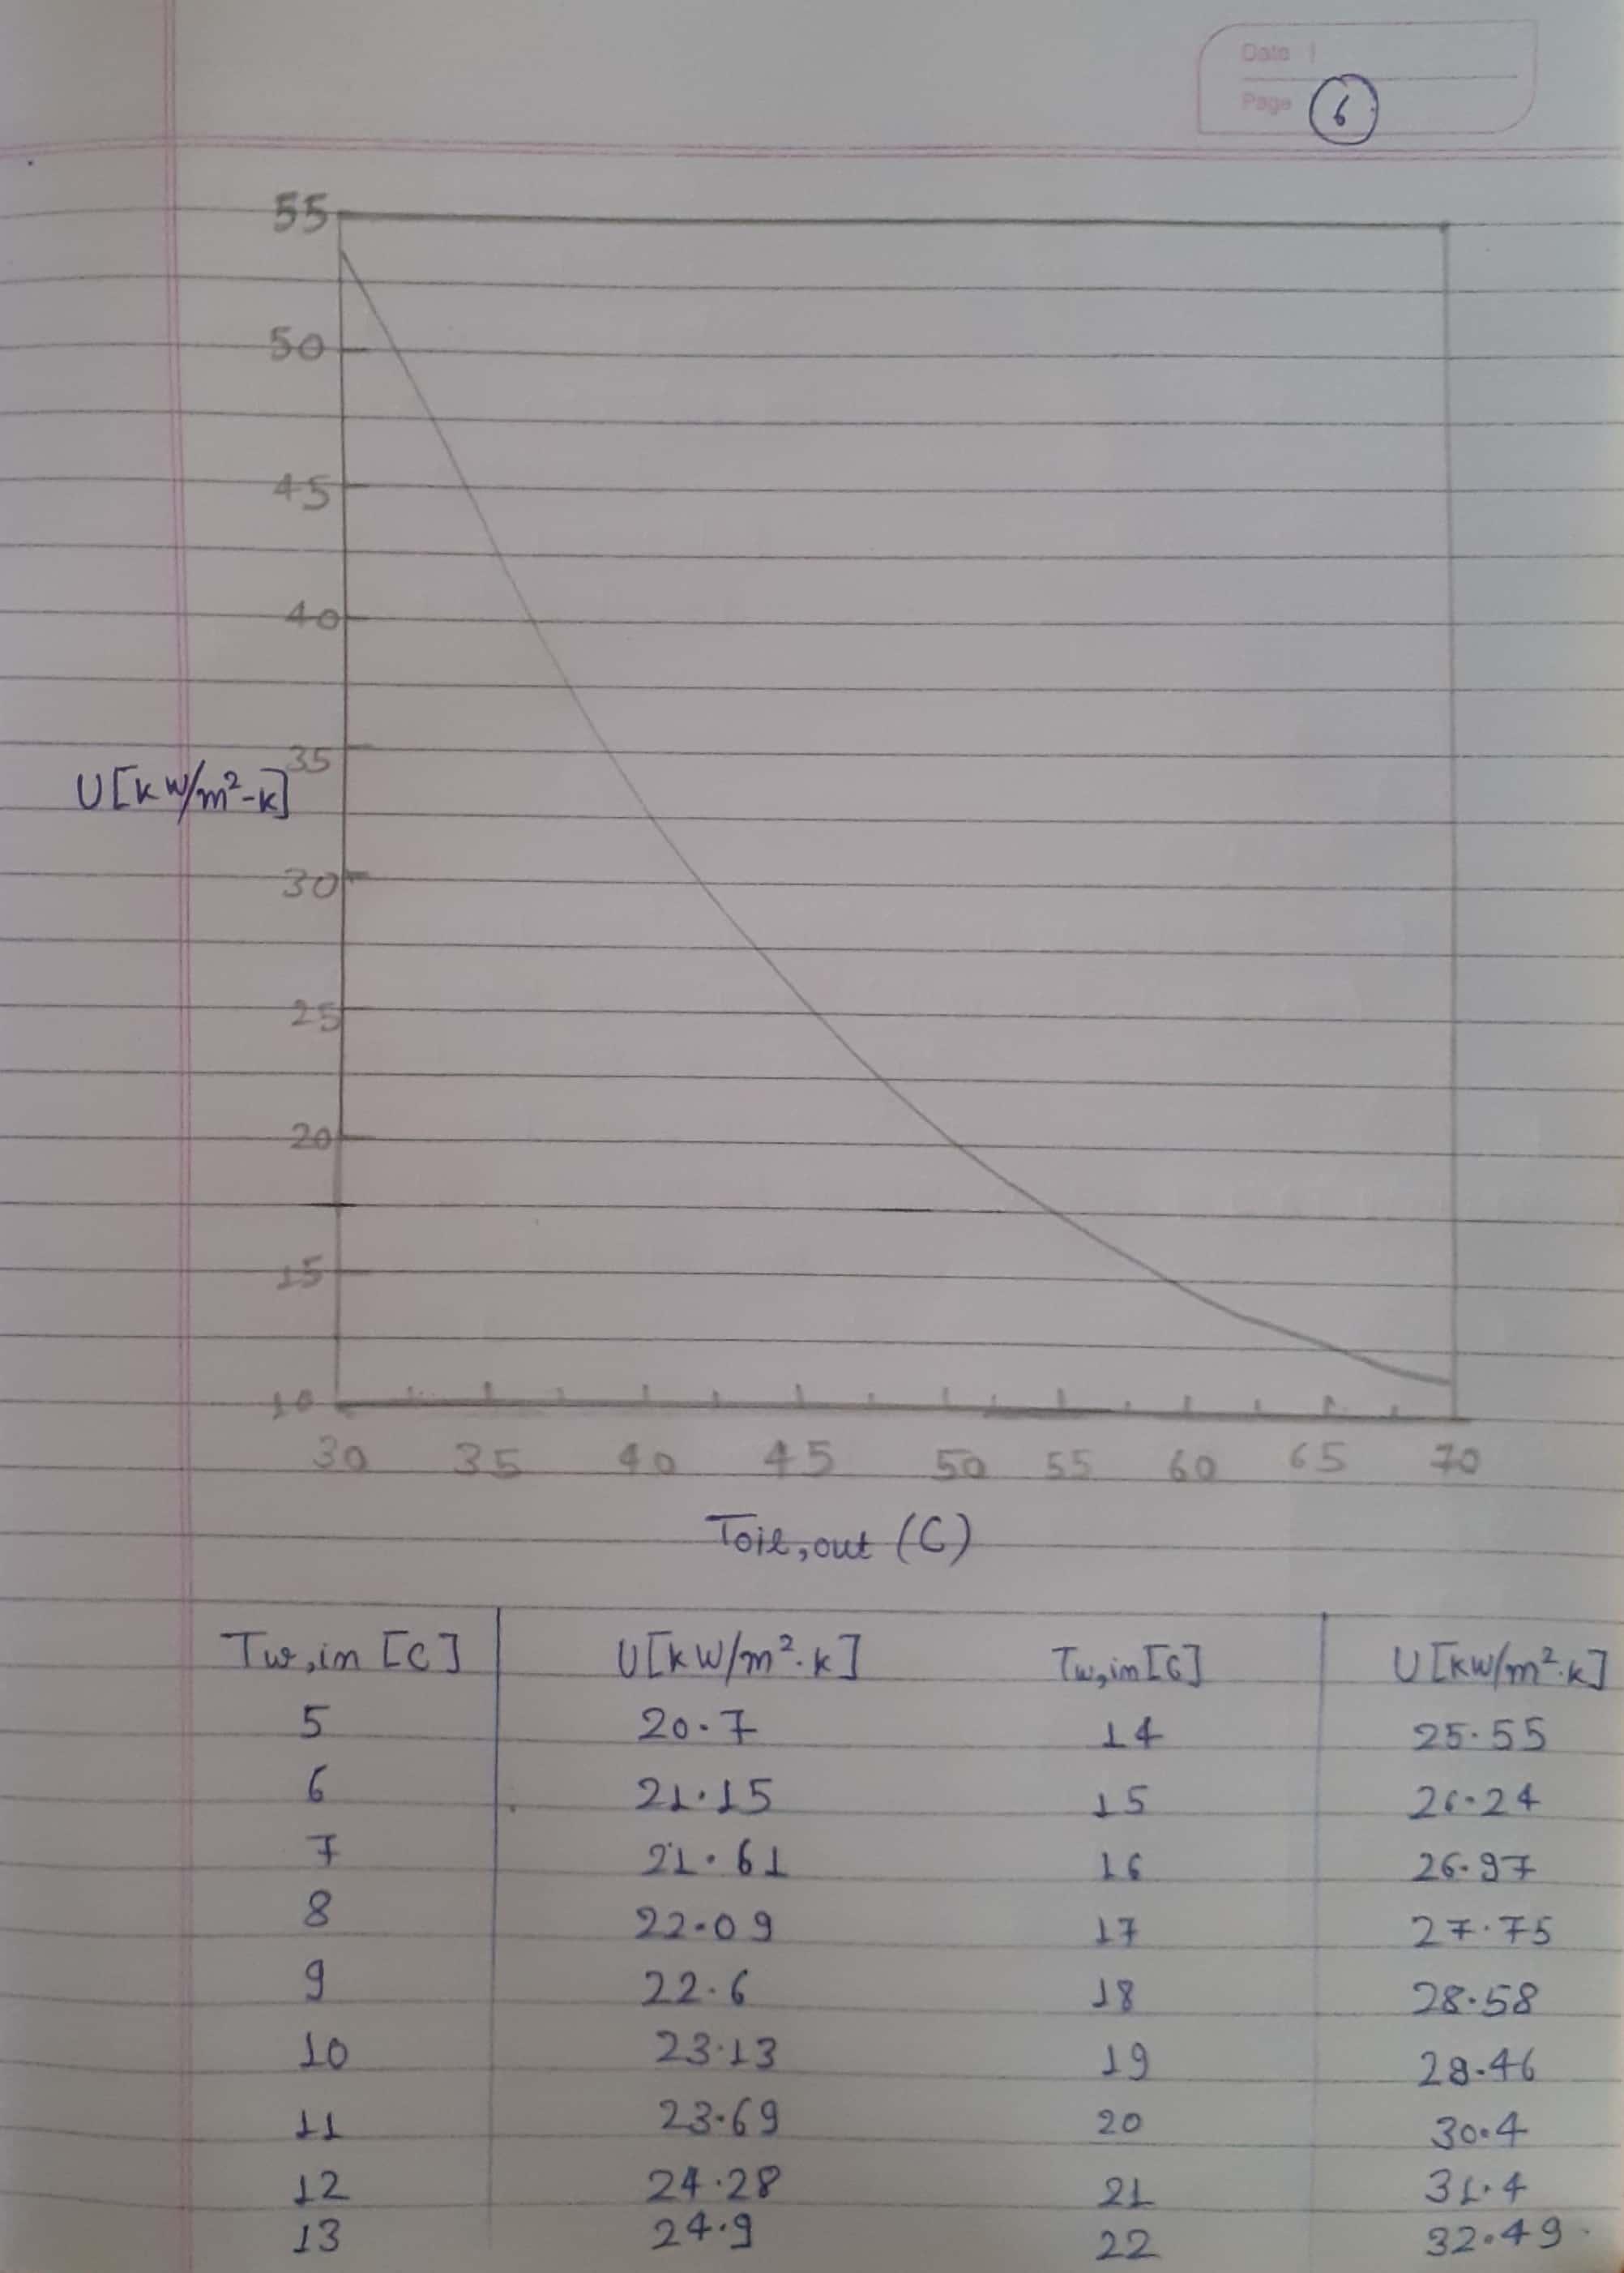 Date
Page 6
55
50
45
40
35
U[kW/m²-k]
30
25
20
15
10
30 35 40 45 50 55 60 65 70
Toil,out (C)
Tw,in [C] U[kW/m².k] Tw,in[C] U[kW/m².k]
5 20.7 14 25.55
6 21.15 15 26.24
7 21.61 16 26.97
8 22.09 17 27.75
9 22.6 18 28.58
10 23.13 19 28.46
11 23.69 20 30.4
12 24.28 21 31.4
13 24.9 22 32.49